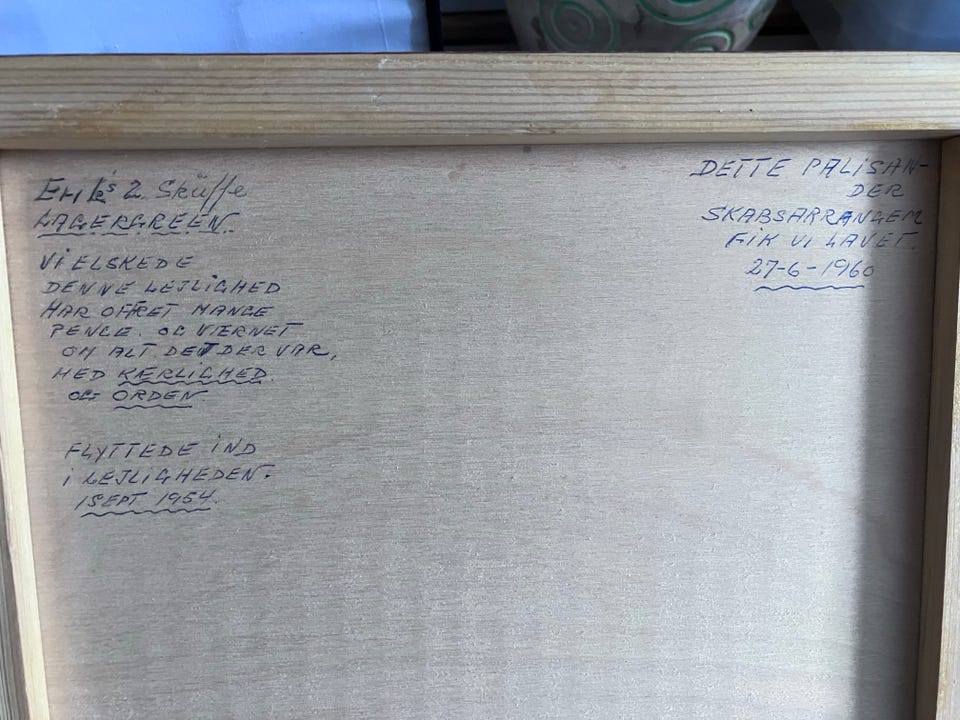 Erik's 2. Sküffe
LAGERGREEN.
VI ELSKEDE
DENNE LEJLIGHED
HAR OFRET MANGE
PENGE. OG VÆRNET
OM ALT DET DER VAR,
MED KÆRLIGHED.
OG ORDEN
FLYTTEDE IND
i LEJLIGHEDEN.
1SEPT 1954.
DETTE PALISAN-
DER
SKABSARRANGEM
FIK VI LAVET.
27-6-1960